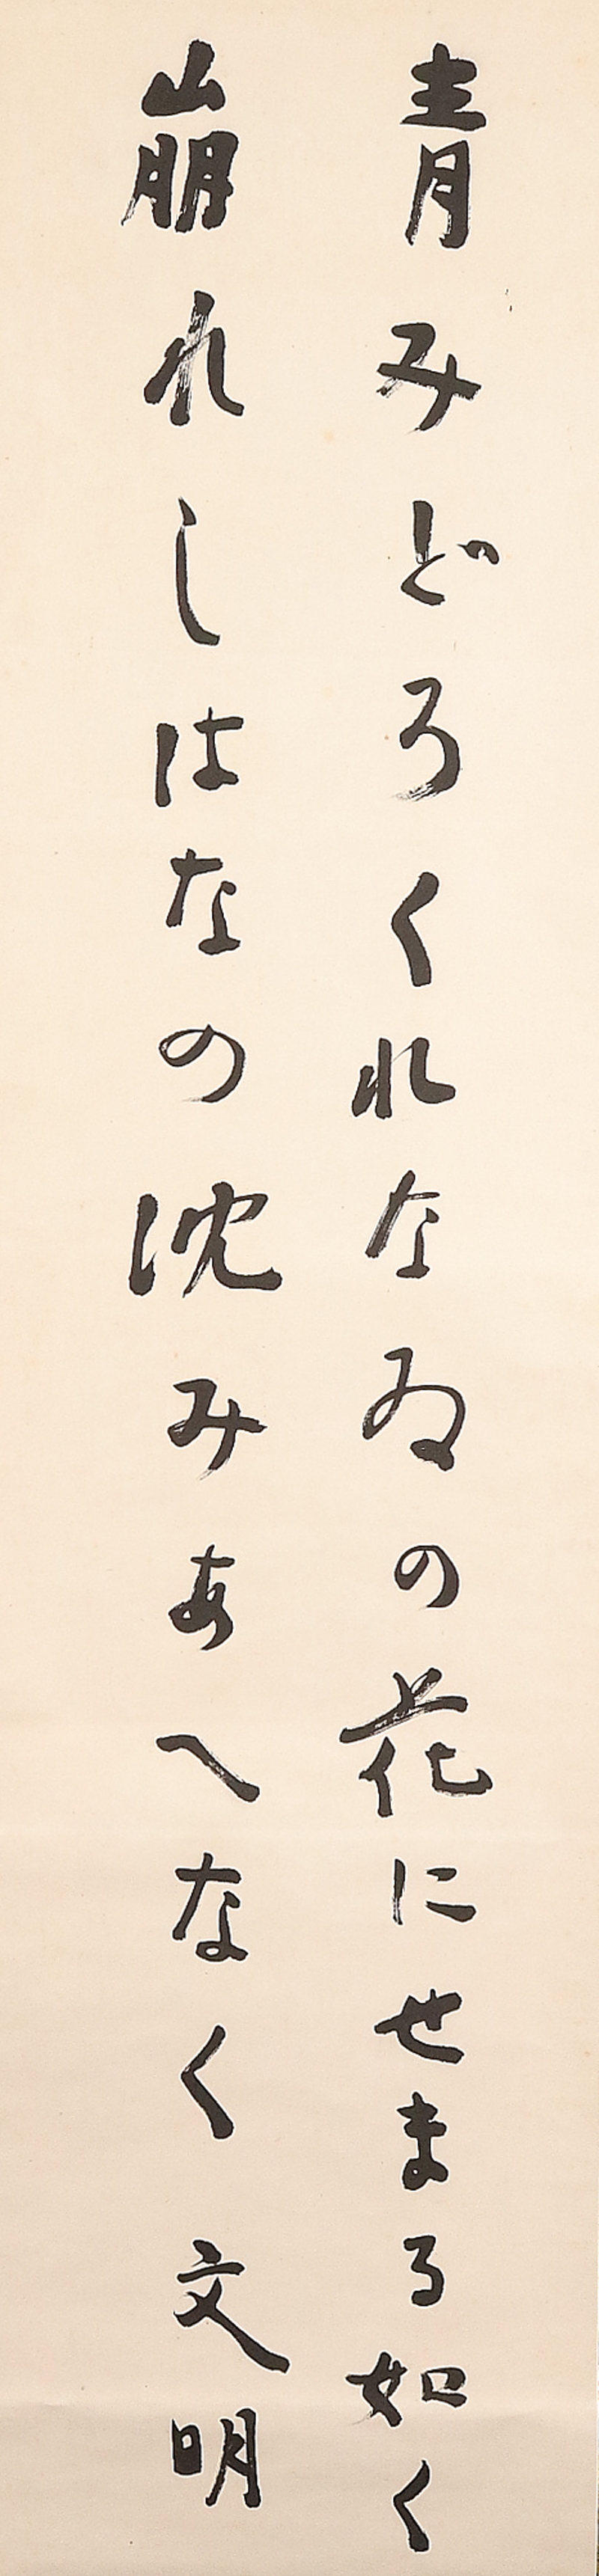 青みどろくれなゐの花にせまる如く
崩れしはなの沈みあへなく 文明